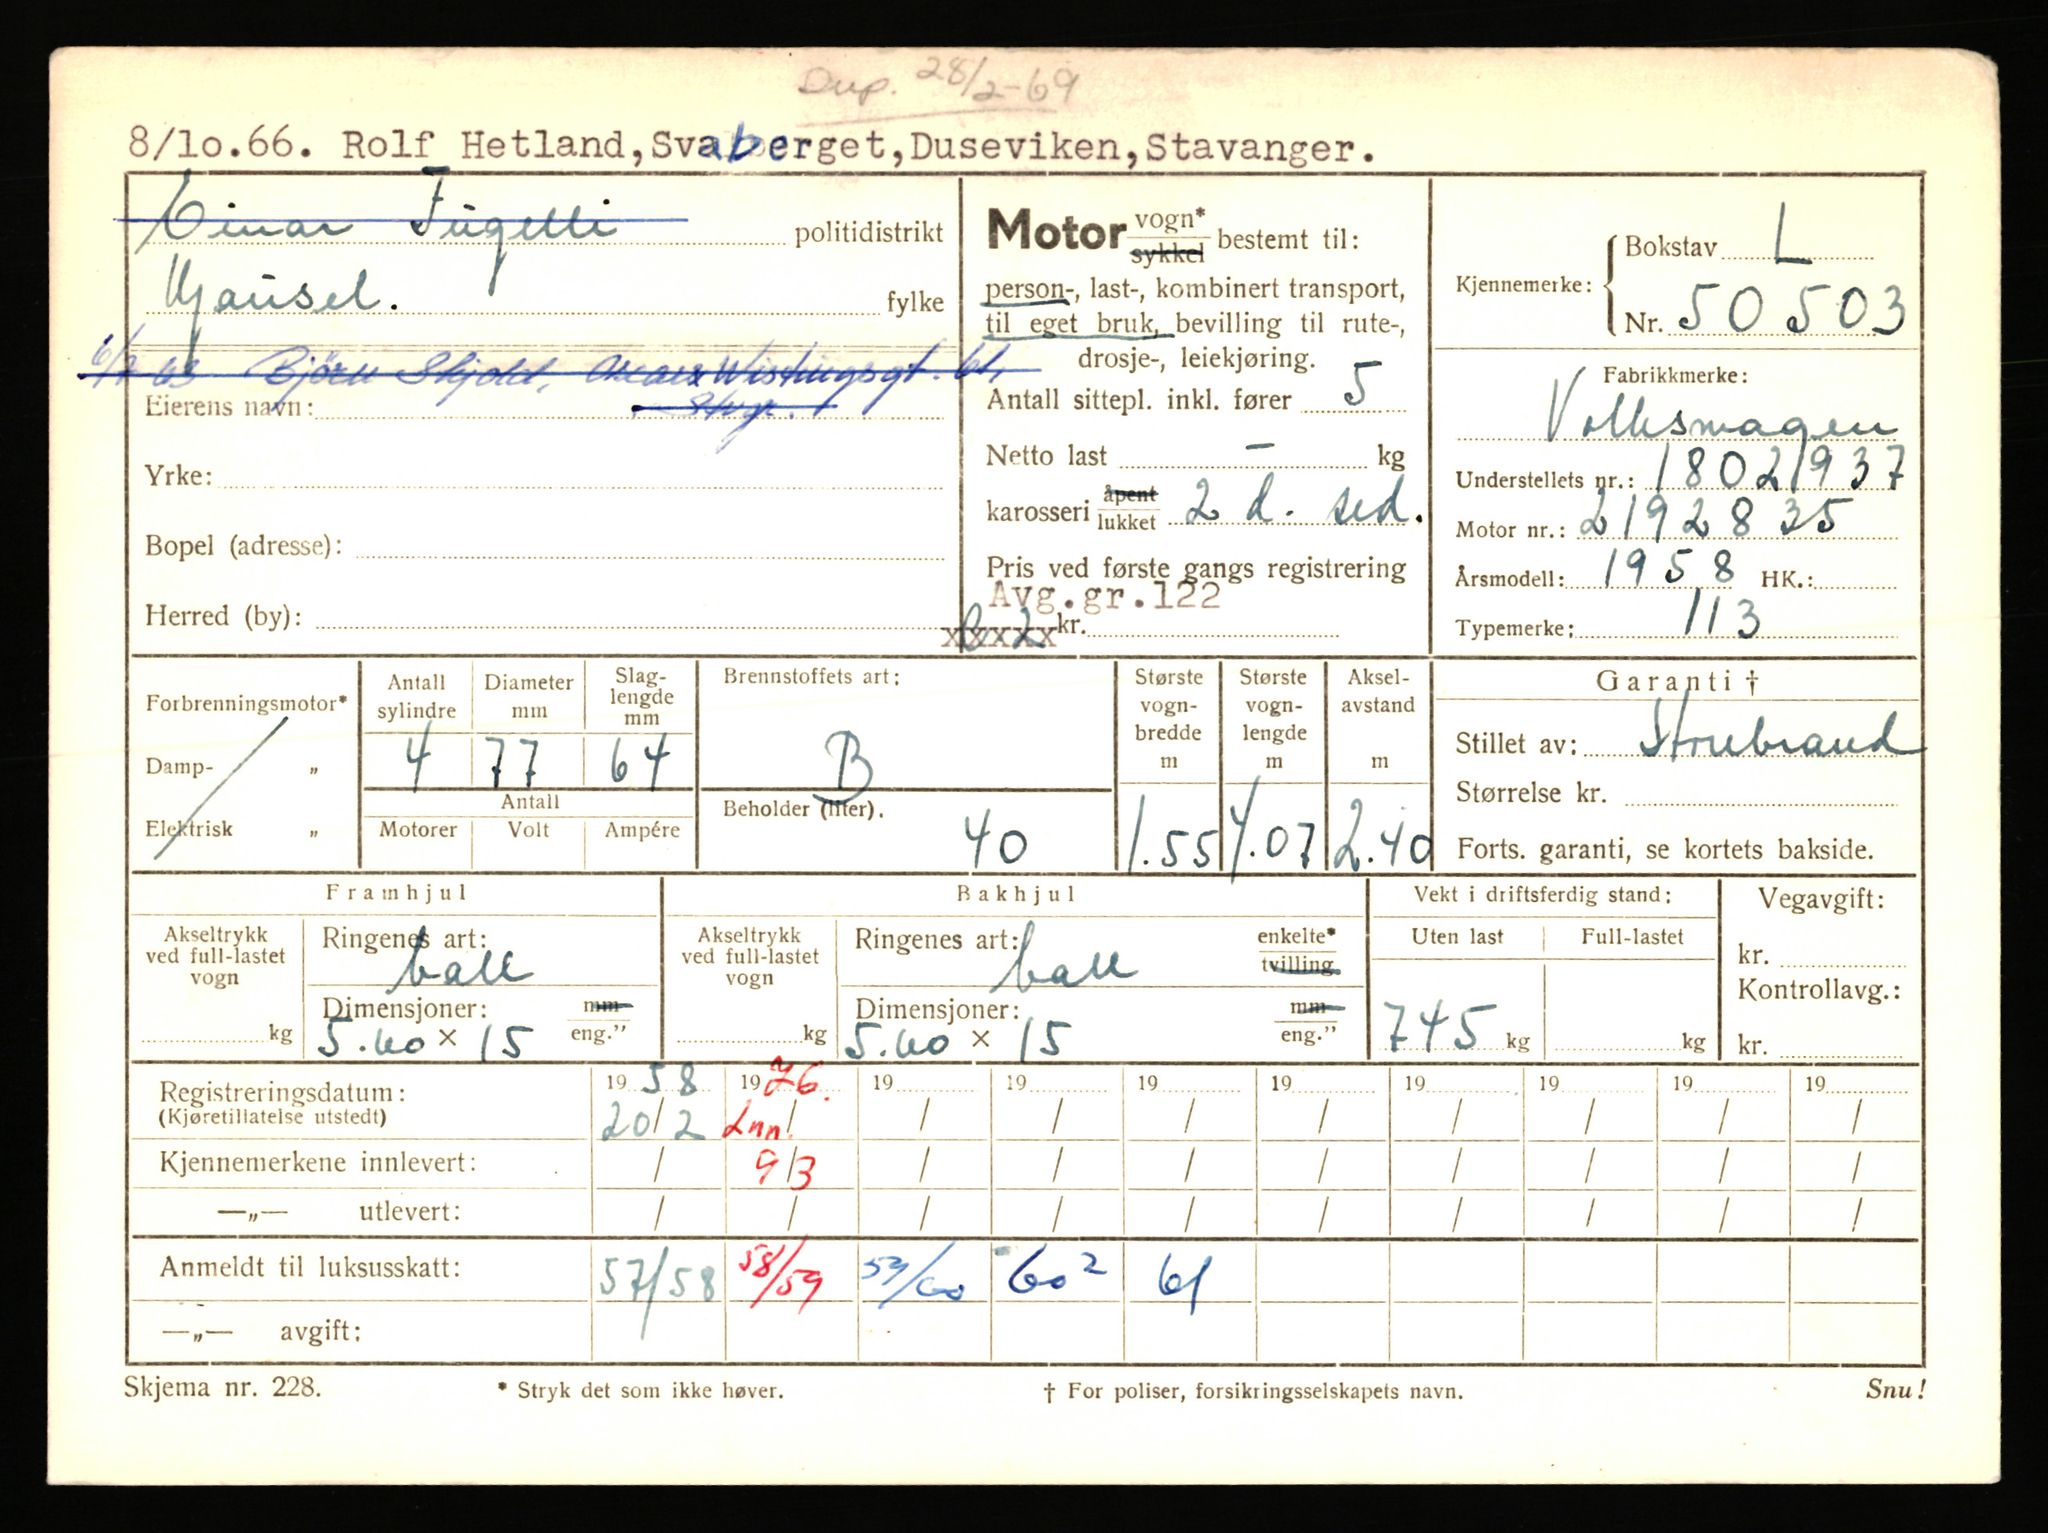 Dup. 28/2-69
8/10.66. Rolf Hetland, Svaberget, Duseviken, Stavanger.
Einar Fugelli politidistrikt
fylke
Björn Skjold, Oscar Wistingsgt. 61,
Stvgr.
Eierens navn:
Yrke:
Bopel (adresse):
Herred (by):
Motor vogn* sykkel bestemt til:
person-, last-, kombinert transport,
til eget bruk, bevilling til rute-,
drosje-, leiekjøring.
Antall sittepl. inkl. fører 5
Netto last – kg
karosseri åpent lukket 2 d. sed.
Pris ved første gangs registrering
Avg.gr.122
xxxxx kr.
Kjennemerke: Bokstav L
Nr. 50503
Fabrikkmerke:
Volkswagen
Understellets nr.: 18021937
Motor nr.: 2192835
Årsmodell: 1958 HK.:
Typemerke: 113
Forbrenningsmotor*
Damp- „
Elektrisk „
Antall sylindre Diameter mm Slaglengde mm
4 77 64
Antall
Motorer Volt Ampére
Brennstoffets art:
B
Beholder (liter).
40
Største vognbredde m
1.55
Største vognlengde m
4.07
Akselavstand m
2.40
Garanti †
Stillet av: Storebrand
Størrelse kr.
Forts. garanti, se kortets bakside.
Framhjul
Akseltrykk ved full-lastet vogn
kg
Ringenes art:
ball
Dimensjoner: mm
5.60 × 15 eng.”
Bakhjul
Akseltrykk ved full-lastet vogn
kg
Ringenes art: enkelte* tvilling
ball
Dimensjoner: mm
5.60 × 15 eng.”
Vekt i driftsferdig stand:
Uten last Full-lastet
745 kg kg
Vegavgift:
kr.
Kontrollavg.:
kr.
Registreringsdatum: 19 58 19 76. 19 19 19 19 19 19 19 19
(Kjøretillatelse utstedt) 20/2 Inn. / / / / / / / / /
Kjennemerkene innlevert: / 9/3 / / / / / / / /
—„— utlevert: / / / / / / / / / /
Anmeldt til luksusskatt: 57/58 58/59 59/60 60² 61
—„— avgift:
Skjema nr. 228. * Stryk det som ikke høver. † For poliser, forsikringsselskapets navn. Snu!